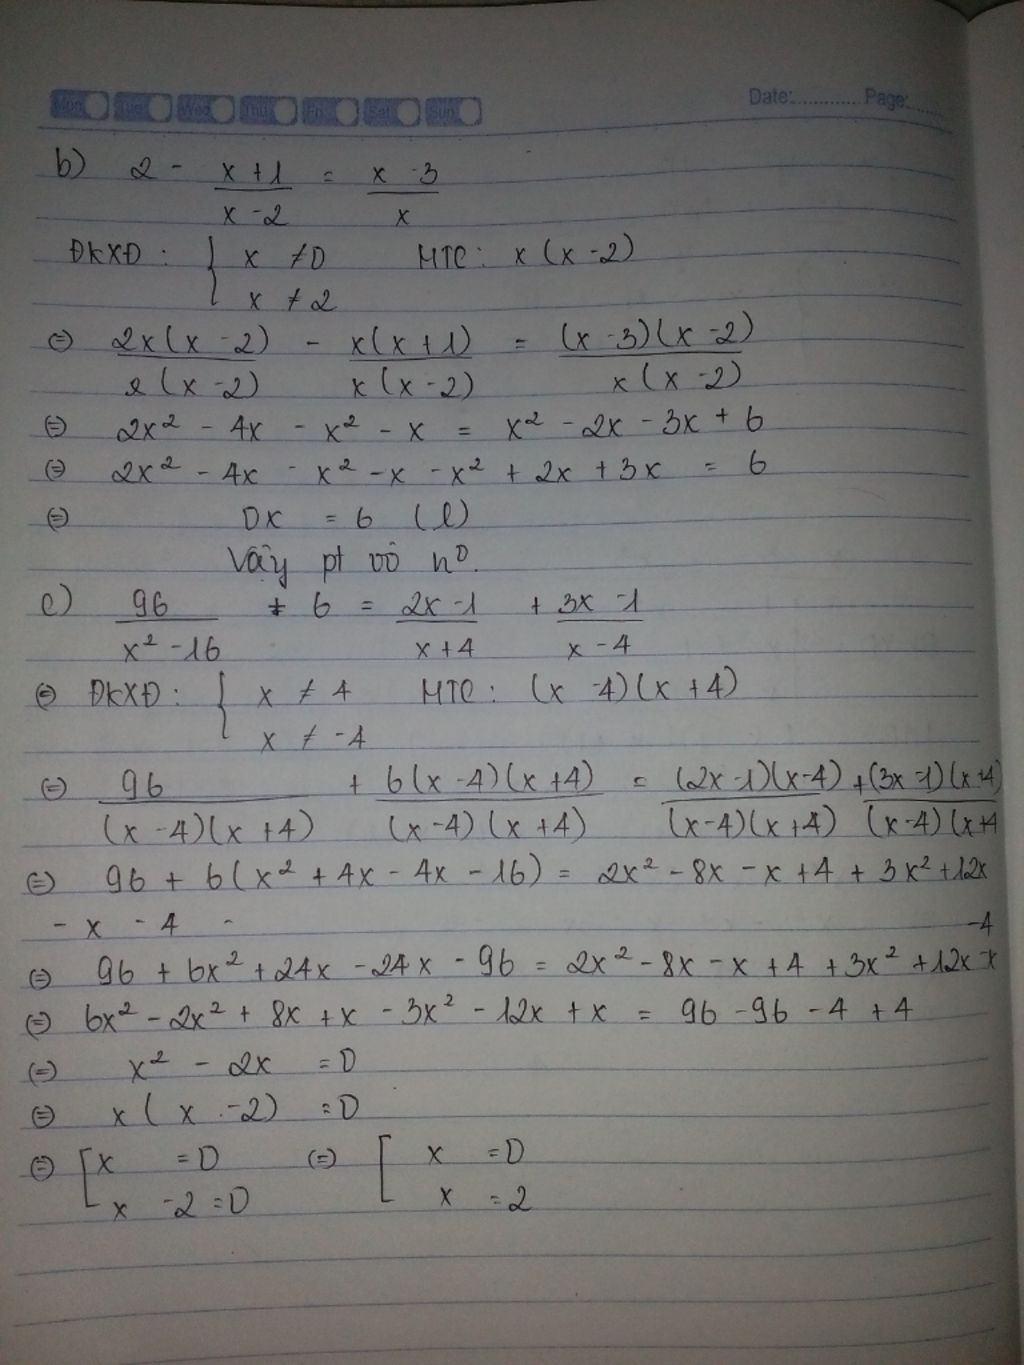 Mon Tue Wed Thu Fri Sat Sun Date:............ Page:......
b) 2 - (x+1)/(x-2) = (x-3)/x
ĐKXĐ: { x ≠ 0 MTC: x(x-2)
x ≠ 2
(=) 2x(x-2)/2(x-2) - x(x+1)/x(x-2) = (x-3)(x-2)/x(x-2)
(=) 2x² - 4x - x² - x = x² - 2x - 3x + 6
(=) 2x² - 4x - x² - x - x² + 2x + 3x = 6
(=) 0x = 6 (l)
Vậy pt vô nº.
c) 96/(x²-16) + 6 = (2x-1)/(x+4) + (3x-1)/(x-4)
(=) ĐKXĐ: { x ≠ 4 MTC: (x-4)(x+4)
x ≠ -4
(=) 96/(x-4)(x+4) + 6(x-4)(x+4)/(x-4)(x+4) = (2x-1)(x-4)/(x-4)(x+4) + (3x-1)(x+4)/(x-4)(x+4
(=) 96 + 6(x² + 4x - 4x - 16) = 2x² - 8x - x + 4 + 3x² + 12x
- x - 4 - -4
(=) 96 + 6x² + 24x - 24x - 96 = 2x² - 8x - x + 4 + 3x² + 12x - x
(=) 6x² - 2x² + 8x + x - 3x² - 12x + x = 96 - 96 - 4 + 4
(=) x² - 2x = 0
(=) x(x - 2) = 0
(=) [ x = 0 (=) [ x = 0
x - 2 = 0 x = 2